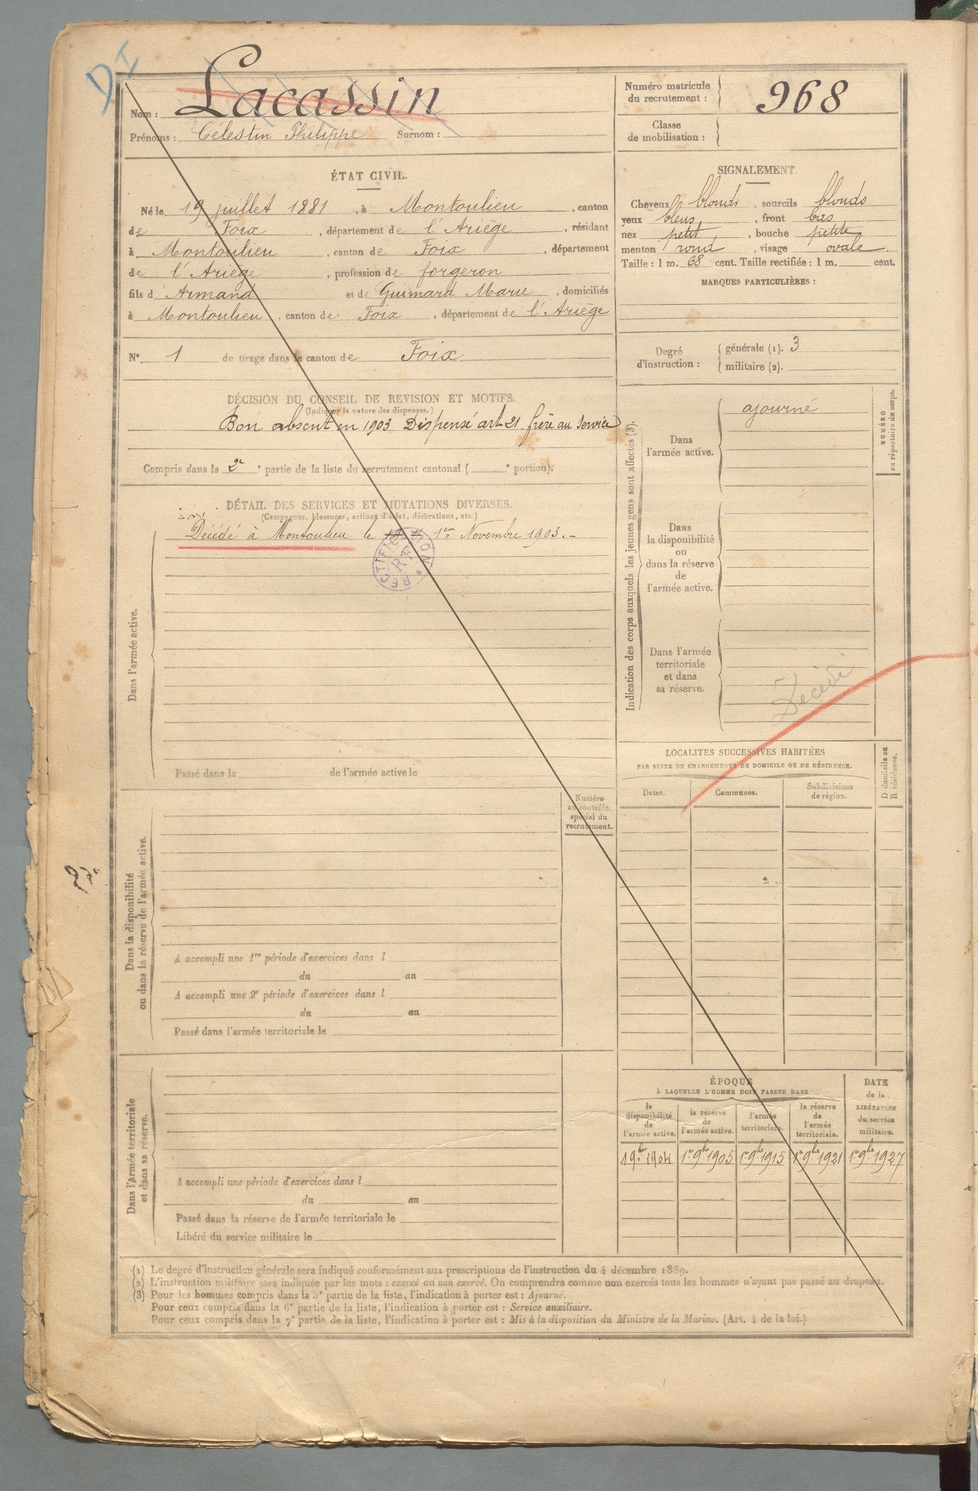 DI
Nom : Lacassin
Prénoms : Célestin Philippe Surnom :
Numéro matricule du recrutement : 968
Classe de mobilisation :
ÉTAT CIVIL.
Né le 19 juillet 1881, à Montoulieu, canton
de Foix, département de l'Ariège, résidant
à Montoulieu, canton de Foix, département
de l'Ariège, profession de forgeron
fils d'Armand et de Guimard Marie, domiciliés
à Montoulieu, canton de Foix, département de l'Ariège
N° 1 de tirage dans le canton de Foix
SIGNALEMENT.
Cheveux blonds, sourcils blonds
yeux bleus, front bas
nez petit, bouche petite
menton rond, visage ovale
Taille : 1 m. 68 cent. Taille rectifiée : 1 m. cent.
MARQUES PARTICULIÈRES :
Degré d'instruction : générale (1). 3
militaire (2).
DÉCISION DU CONSEIL DE REVISION ET MOTIFS.
(Indiquer la nature des dispenses.)
Bon absent en 1903 Dispensé art 21. frère au service
Compris dans la 2e partie de la liste du recrutement cantonal ( e portion).
DÉTAIL DES SERVICES ET MUTATIONS DIVERSES.
(Campagnes, blessures, actions d'éclat, décorations, etc.)
Décédé à Montoulieu le 1er Novembre 1903.-
RECTIFICATION
RF
Dans l'armée active.
Passé dans la de l'armée active le
Indication des corps auxquels les jeunes gens sont affectés (3).
Dans l'armée active.
ajourné
NUMÉRO au répertoire du corps.
Dans la disponibilité ou dans la réserve de l'armée active.
Dans l'armée territoriale et dans sa réserve.
Décédé
LOCALITÉS SUCCESSIVES HABITÉES
PAR SUITE DE CHANGEMENTS DE DOMICILE OU DE RÉSIDENCE.
Dates.
Communes.
Subdivisions de région.
D domicile ou R résidence.
Numéro au contrôle spécial du recrutement.
Dans la disponibilité ou dans la réserve de l'armée active.
A accompli une 1re période d'exercices dans l
du au
A accompli une 2e période d'exercices dans l
du au
Passé dans l'armée territoriale le
Dans l'armée territoriale et dans sa réserve.
A accompli une période d'exercices dans l
du au
Passé dans la réserve de l'armée territoriale le
Libéré du service militaire le
ÉPOQUE
À LAQUELLE L'HOMME DOIT PASSER DANS
la disponibilité de l'armée active.
la réserve de l'armée active.
l'armée territoriale.
la réserve de l'armée territoriale.
DATE de la LIBÉRATION du service militaire.
1 9bre 1904
1er 9bre 1905
1er 9bre 1915
1er 9bre 1921
1er 9bre 1927
(1) Le degré d'instruction générale sera indiqué conformément aux prescriptions de l'instruction du 4 décembre 1889.
(2) L'instruction militaire sera indiquée par les mots : exercé ou non exercé. On comprendra comme non exercés tous les hommes n'ayant pas passé au drapeau.
(3) Pour les hommes compris dans la 5e partie de la liste, l'indication à porter est : Ajourné.
Pour ceux compris dans la 6e partie de la liste, l'indication à porter est : Service auxiliaire.
Pour ceux compris dans la 7e partie de la liste, l'indication à porter est : Mis à la disposition du Ministre de la Marine. (Art. 4 de la loi.)